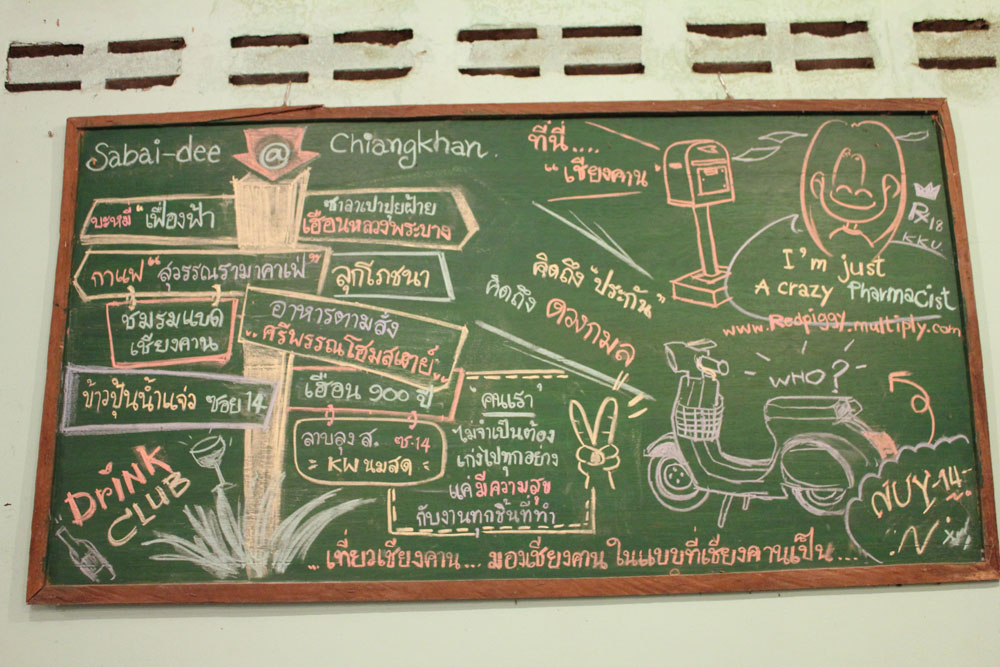 Sabai-dee @ Chiangkhan.
บะหมี่ "เฟื่องฟ้า
ซาลาเปาปุยฝ้าย
เฮือนหลวงพระบาง
กาแฟ "สุวรรณรามาคาเฟ่"
ลูกโภชนา
ชมรมแบดฯ
เชียงคาน
อาหารตามสั่ง
"ศรีพรรณโฮมสเตย์"
ข้าวปุ้นน้ำแจ่ว ซอย 14
เฮือน 900 ปี
ลาบลุง ส. ซ.14
= KW นมสด =
DRINK
CLUB
ที่นี่....
"เชียงคาน"
คิดถึง "ประกัน"
คิดถึง ดวงกมล
"คนเรา"
ไม่จำเป็นต้อง
เก่งไปทุกอย่าง
แค่ มีความสุข
กับงานทุกชิ้นที่ทำ
Rx 18
KKU.
I'm just
A crazy Pharmacist
www.Redpiggy.multiply.com
WHO?
NUY-14-
.N
... เที่ยวเชียงคาน ... มองเชียงคาน ในแบบที่เชียงคานเป็น ...